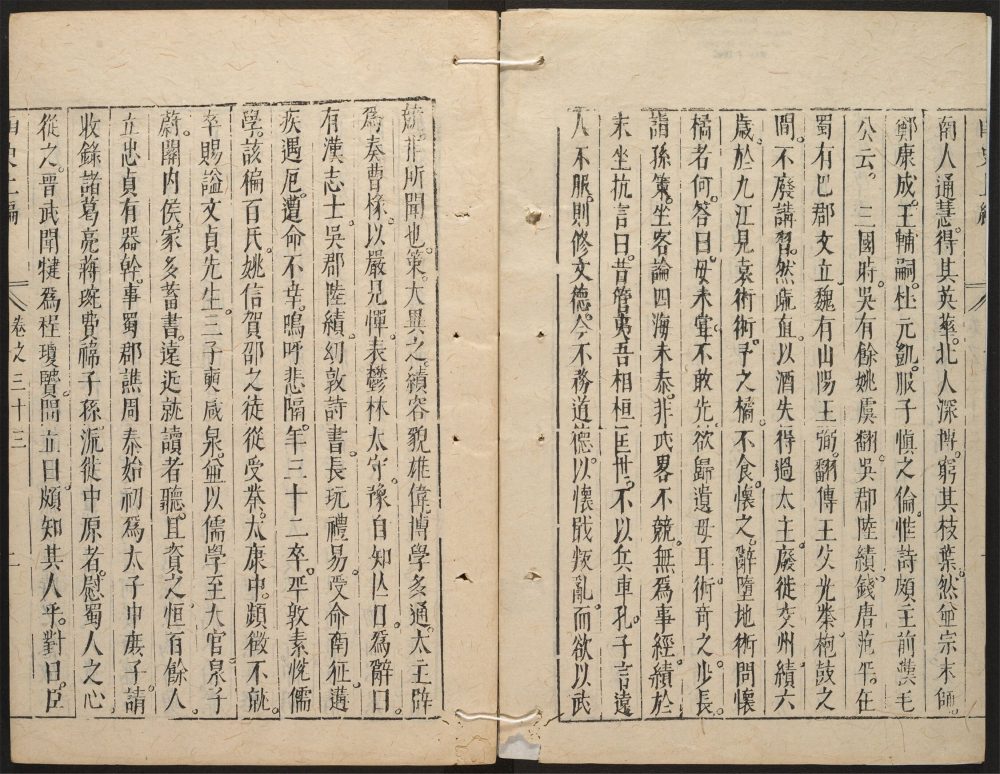 南人通慧。得其英華。北人深博。窮其枝葉。然並宗末師。
鄭康成。王輔嗣。杜元凱。服子愼之倫。惟詩頗主前漢毛
公云。三國時。吳有餘姚虞翻。吳郡陸績。錢唐范平。在
蜀有巴郡文立。魏有山陽王弼。翻傳王父光業。枹鼓之
間。不廢講習。然疏直。以酒失得過大主。廢徙交州。績六
歲。於九江見袁術。術予之橘。不食。懷之。辭墮地。術問懷
橘者何。答曰。母未嘗不敢先。欲歸遺母耳。術奇之。少長。
詣孫策。坐客論四海未泰。非武畧不競。無爲事經。績於
末坐抗言曰。昔管夷吾相桓匡世。不以兵車。孔子言遠
人不服。則修文德。今不務道德。以懷戢叛亂。而欲以武
競。非所聞也。策大異之。績容貌雄偉。博學多通。太主辟
爲奏曹橡。以嚴見憚。表鬱林太守。豫自知亾日。爲辭曰。
有漢志士。吳郡陸績。幼敦詩書。長玩禮易。受命南征。遘
疾遇厄。遭命不幸。嗚呼悲隔。年三十二卒。平敦素悅儒
學。該徧百氏。姚信賀邵之徒從受業。太康中。頻徵不就。
卒賜諡文貞先生。三子奭咸泉。並以儒學至大官。泉子
蔚。關內侯。家多蓄書。遠近就讀者聽。且資之。恒百餘人。
立忠貞有器幹。事蜀郡譙周。泰始初。爲太子中庶子。請
收錄諸葛亮蔣琬費禕子孫。流徙中原者。慰蜀人之心
從之。晋武聞犍爲程瓊賢。問立曰。頗知其人乎。對曰。臣
卷之三十三